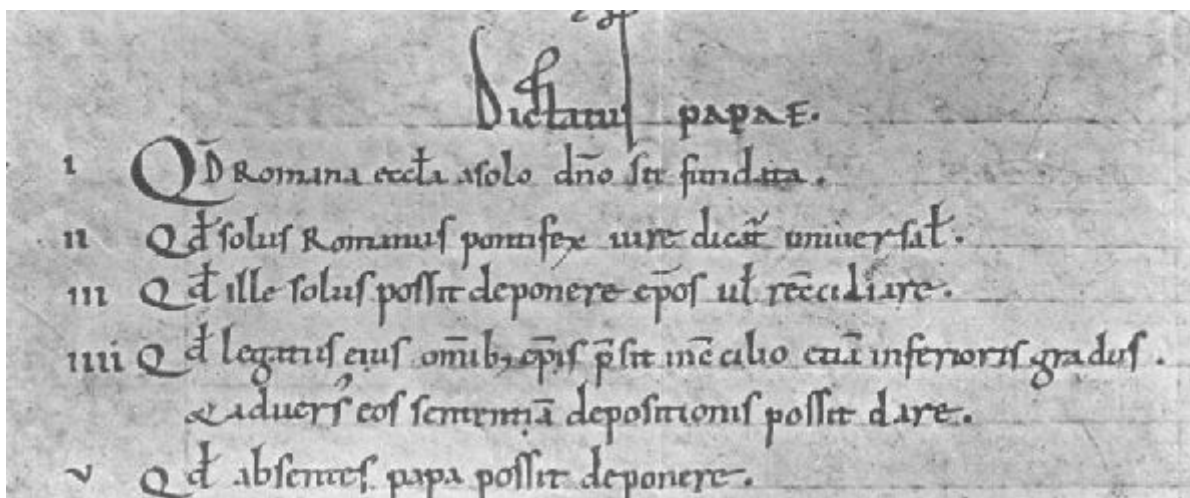 Dictatus papae.
i Qd̄ Romana eccl̄a a solo dn̄o sit fundata.
ii Qđ solus Romanus pontifex iure dicat᷑ universal̄.
iii Qđ ille solus possit deponere ep̄os ul̄ recc̄iliare.
iiii Qđ legatus eius om̄ib; ep̄is p̄sit in cc̄ilio etiā inferioris gradus.
& adversʼ eos sententiā depositionis possit dare.
v Qđ absentes papa possit deponere.